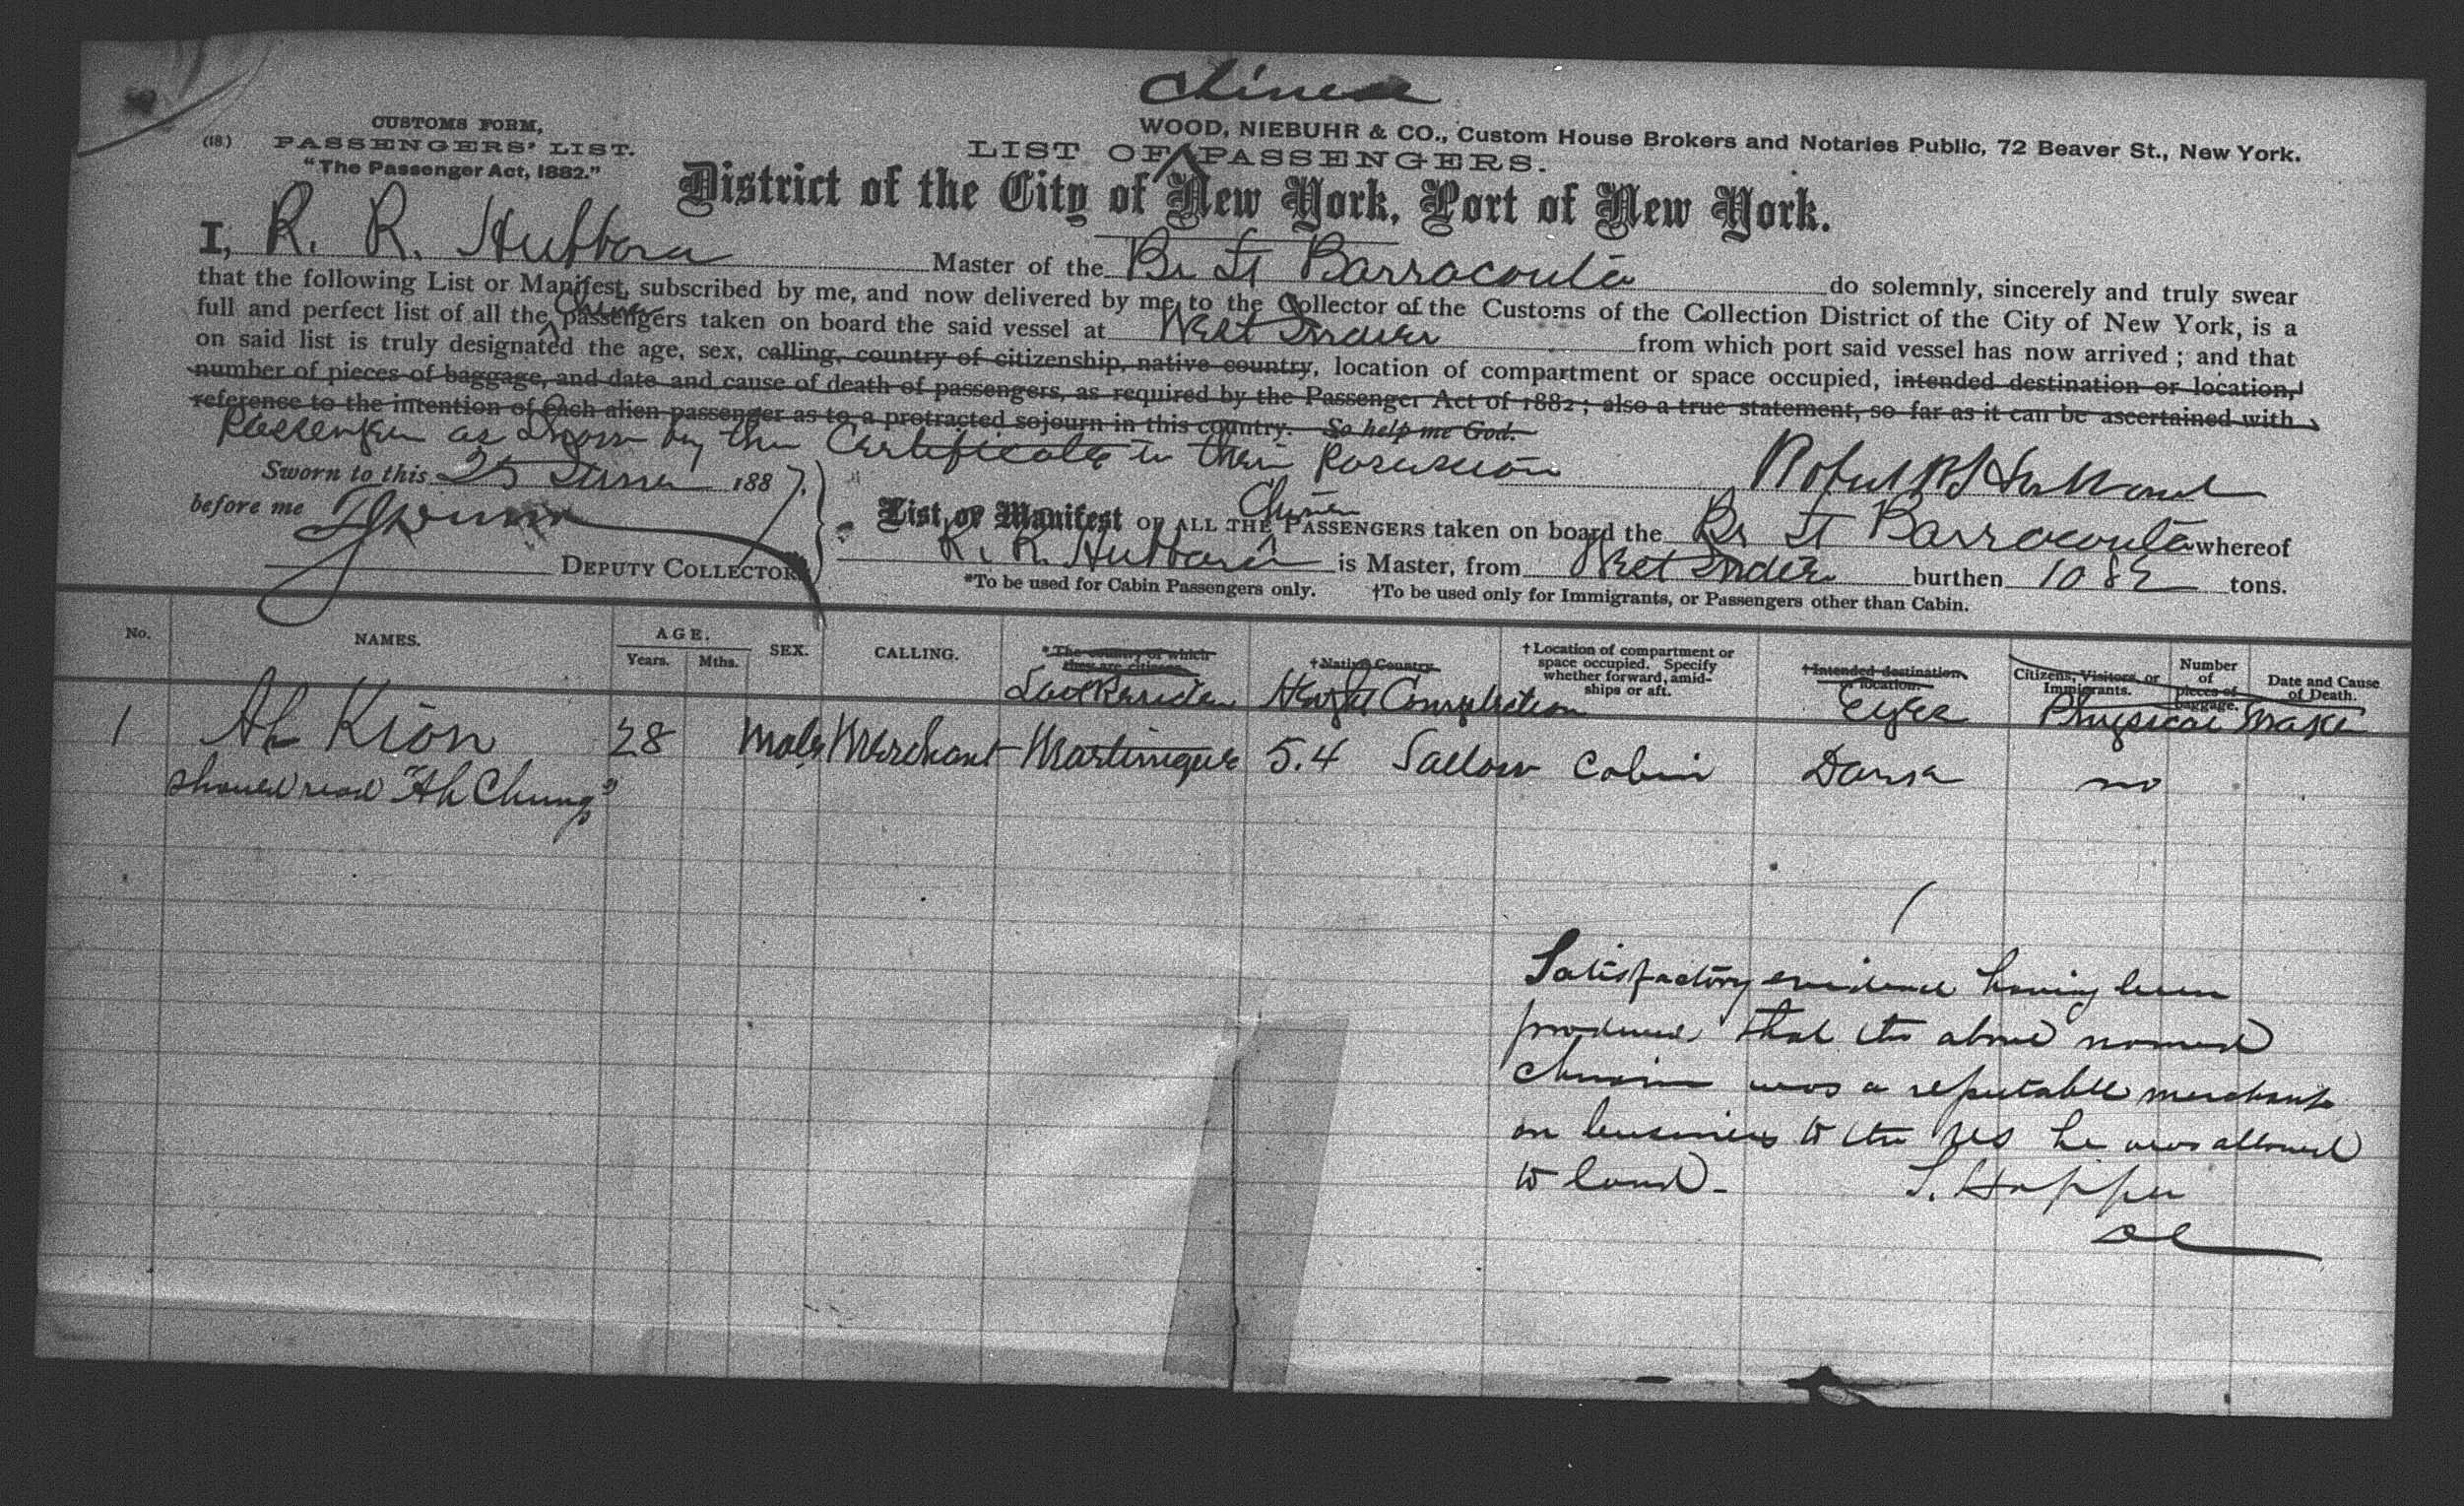 Chinese
CUSTOMS FORM,
(18.) PASSENGERS' LIST.
"The Passenger Act, 1882."
WOOD, NIEBUHR & CO., Custom House Brokers and Notaries Public, 72 Beaver St., New York.
LIST OF PASSENGERS.
District of the City of New York, Port of New York.
I, R. R. Hubbard Master of the Br St Barracouta do solemnly, sincerely and truly swear
that the following List or Manifest, subscribed by me, and now delivered by me, to the Collector of the Customs of the Collection District of the City of New York, is a
full and perfect list of all the Chinese passengers taken on board the said vessel at West Indies from which port said vessel has now arrived; and that
on said list is truly designated the age, sex, calling, country of citizenship, native country, location of compartment or space occupied, intended destination or location,
number of pieces of baggage, and date and cause of death of passengers, as required by the Passenger Act of 1882; also a true statement, so far as it can be ascertained with
reference to the intention of each alien passenger as to a protracted sojourn in this country. So help me God.
Passenger as shown by the Certificate in their possession
Robert R Hubbard
Sworn to this 25 1887.
before me
DEPUTY COLLECTOR.
List or Manifest OF ALL THE Chinese PASSENGERS taken on board the Br St Barracouta whereof
R. R. Hubbard is Master, from West Indies burthen 1082 tons.
*To be used for Cabin Passengers only. †To be used only for Immigrants, or Passengers other than Cabin.
No. NAMES. AGE. Years. Mths. SEX. CALLING. *The country of which they are citizens. †Native Country. †Location of compartment or space occupied. Specify whether forward, amidships or aft. †Intended destination or location. Citizens, Visitors, or Immigrants. Number of pieces of baggage. Date and Cause of Death.
Last Residence Height Complexion Eyes Physical Marks
1 Ah Kion 28 Male Merchant Martinique 5.4 Sallow Cabin Dark no
should read "Ah Chung"
Satisfactory evidence having been
produced that the above named
Chinese was a reputable merchant
on business to the US he was allowed
to land.
S. Hopper